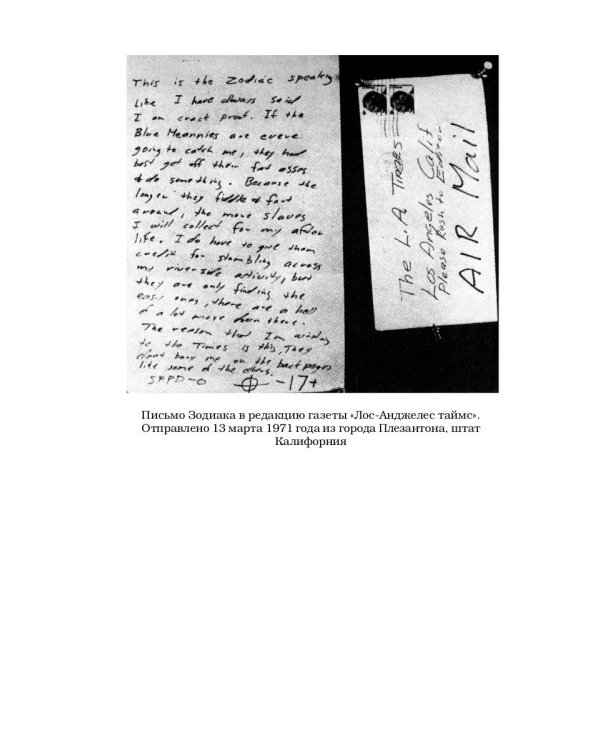 This is the Zodiac speaking
like I have always said
I am crack proof. If the
Blue Meannies are evere
going to catch me, they had
best get off their fat asses
& do something. Because the
longer they fiddle & fart
around, the more slaves
I will collect for my after
life. I do have to give them
credit for stumbling across
my riverside activity, but
they are only finding the
easy ones, there are a hell
of a lot more down there.
The reason that I'm writing
to the Times is this, They
don't bury me on the back pages
like some of the others.
SFPD-0 -17+
The L.A. Times
Los Angeles Calif
Please Rush to Editor
AIR Mail
Письмо Зодиака в редакцию газеты «Лос-Анджелес таймс».
Отправлено 13 марта 1971 года из города Плезантона, штат
Калифорния